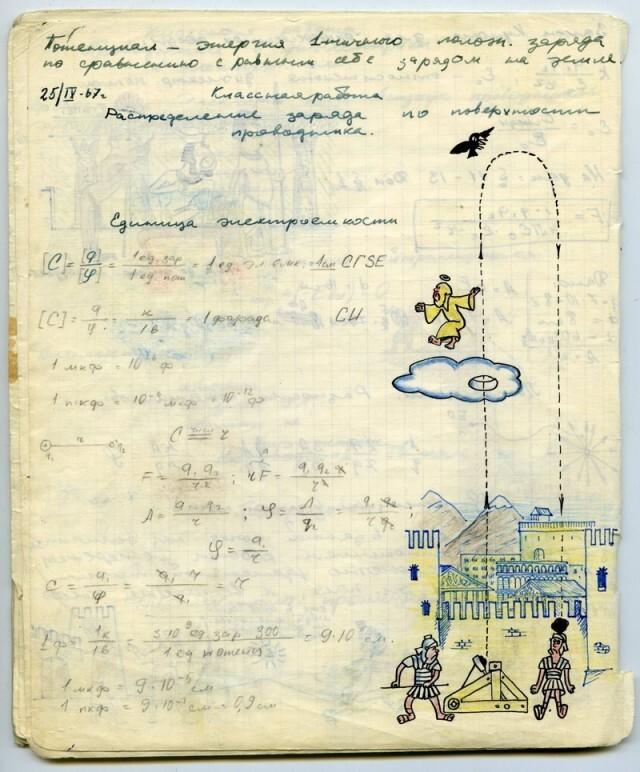 Потенциал – энергия 1-ничного полож. заряда
по сравнению с равным себе зарядом на земле.
25/IV-67г. Классная работа
Распределение заряда по поверхности
проводника.
Единица электроемкости
[C] = [q]/[φ] = 1 ед. зар / 1 ед. пот = 1 ед. эл. емк. = 1 см СГSE
[C] = q/φ = к/1в = 1 фарада СИ
1 мкф = 10⁻⁶ ф
1 пкф = 10⁻⁶ мкф = 10⁻¹² ф
C = r
r
q₁ q₂
F = q₁q₂/r² ; rF = q₁q₂r/r²
A = q₁q₂/r ; φ = A/q₂ = q₁q₂/rq₂ ;
φ = q/r
C = q₁/φ = q₁r/q₁ = r
1ф = 1к/1в = 3·10⁹ ед. зар 300 / 1 ед потенц = 9·10¹¹ см.
1 мкф = 9·10⁵ см
1 пкф = 9·10⁻¹ см = 0,9 см